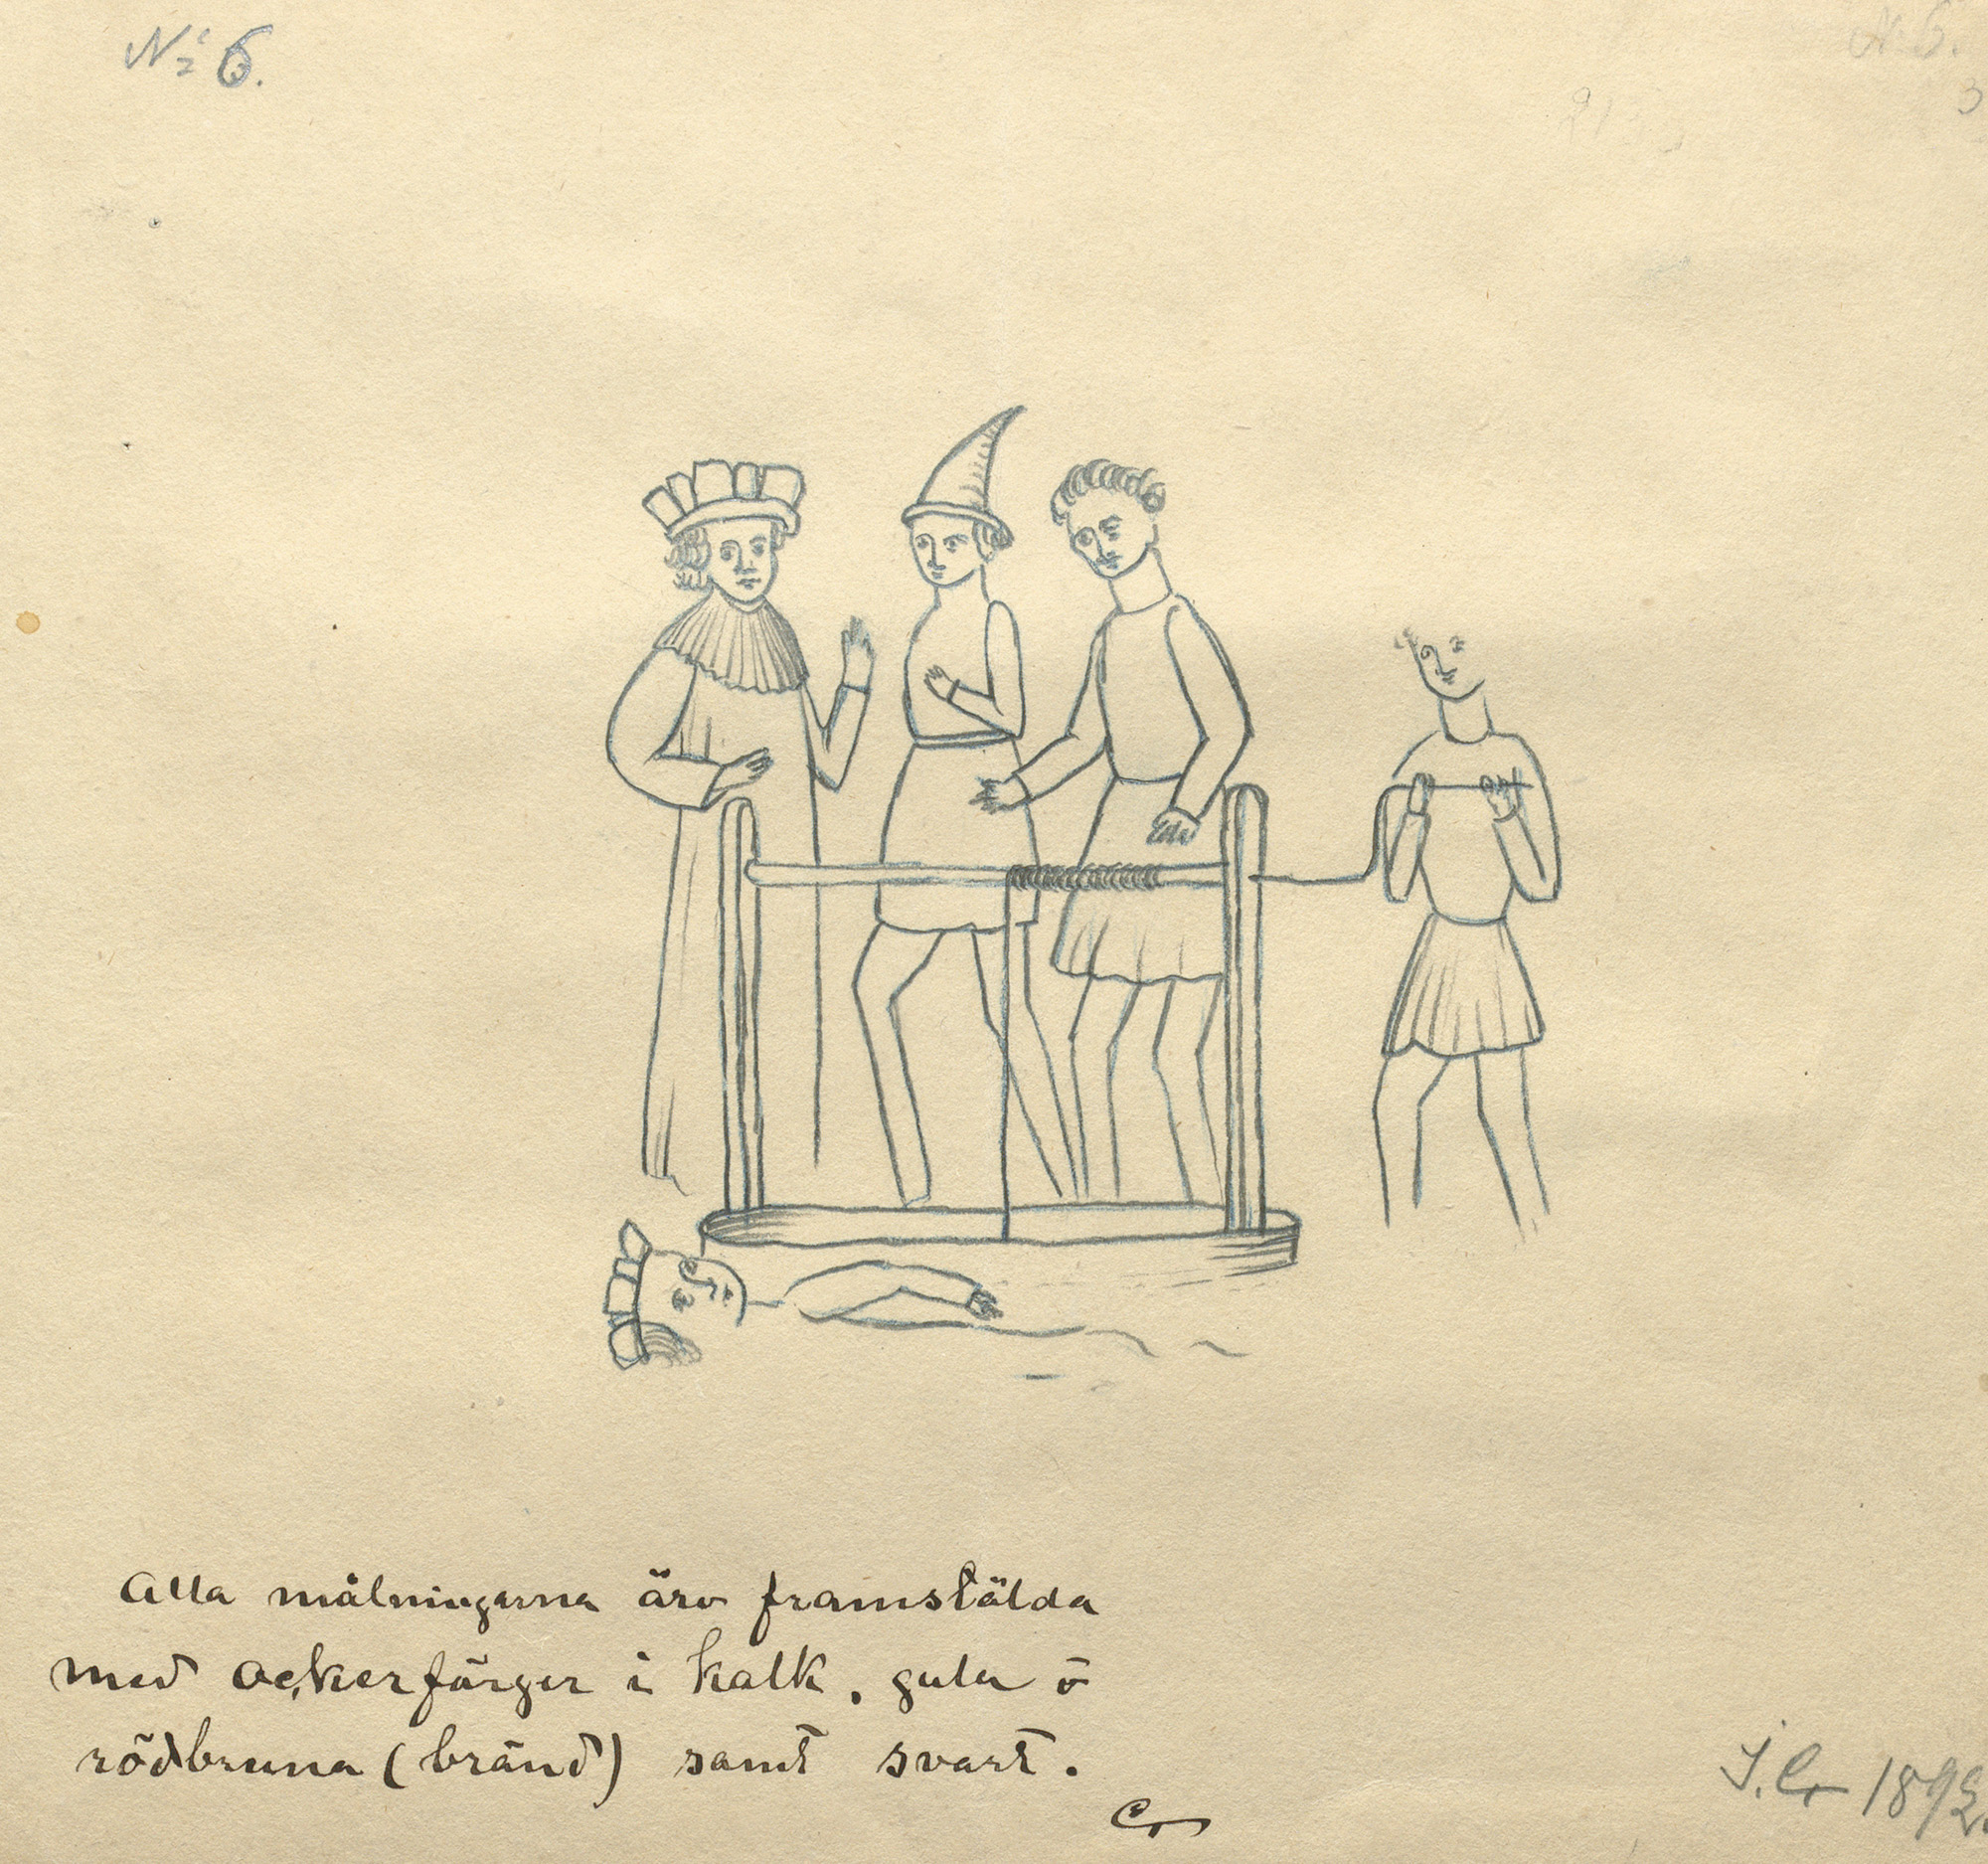 No 6.
N. 6.
3
Alla målningarna äro framstälda
med ockerfärger i kalk, gula o
rödbruna (bränd) samt svart.
Cr
J. Cr 1892.